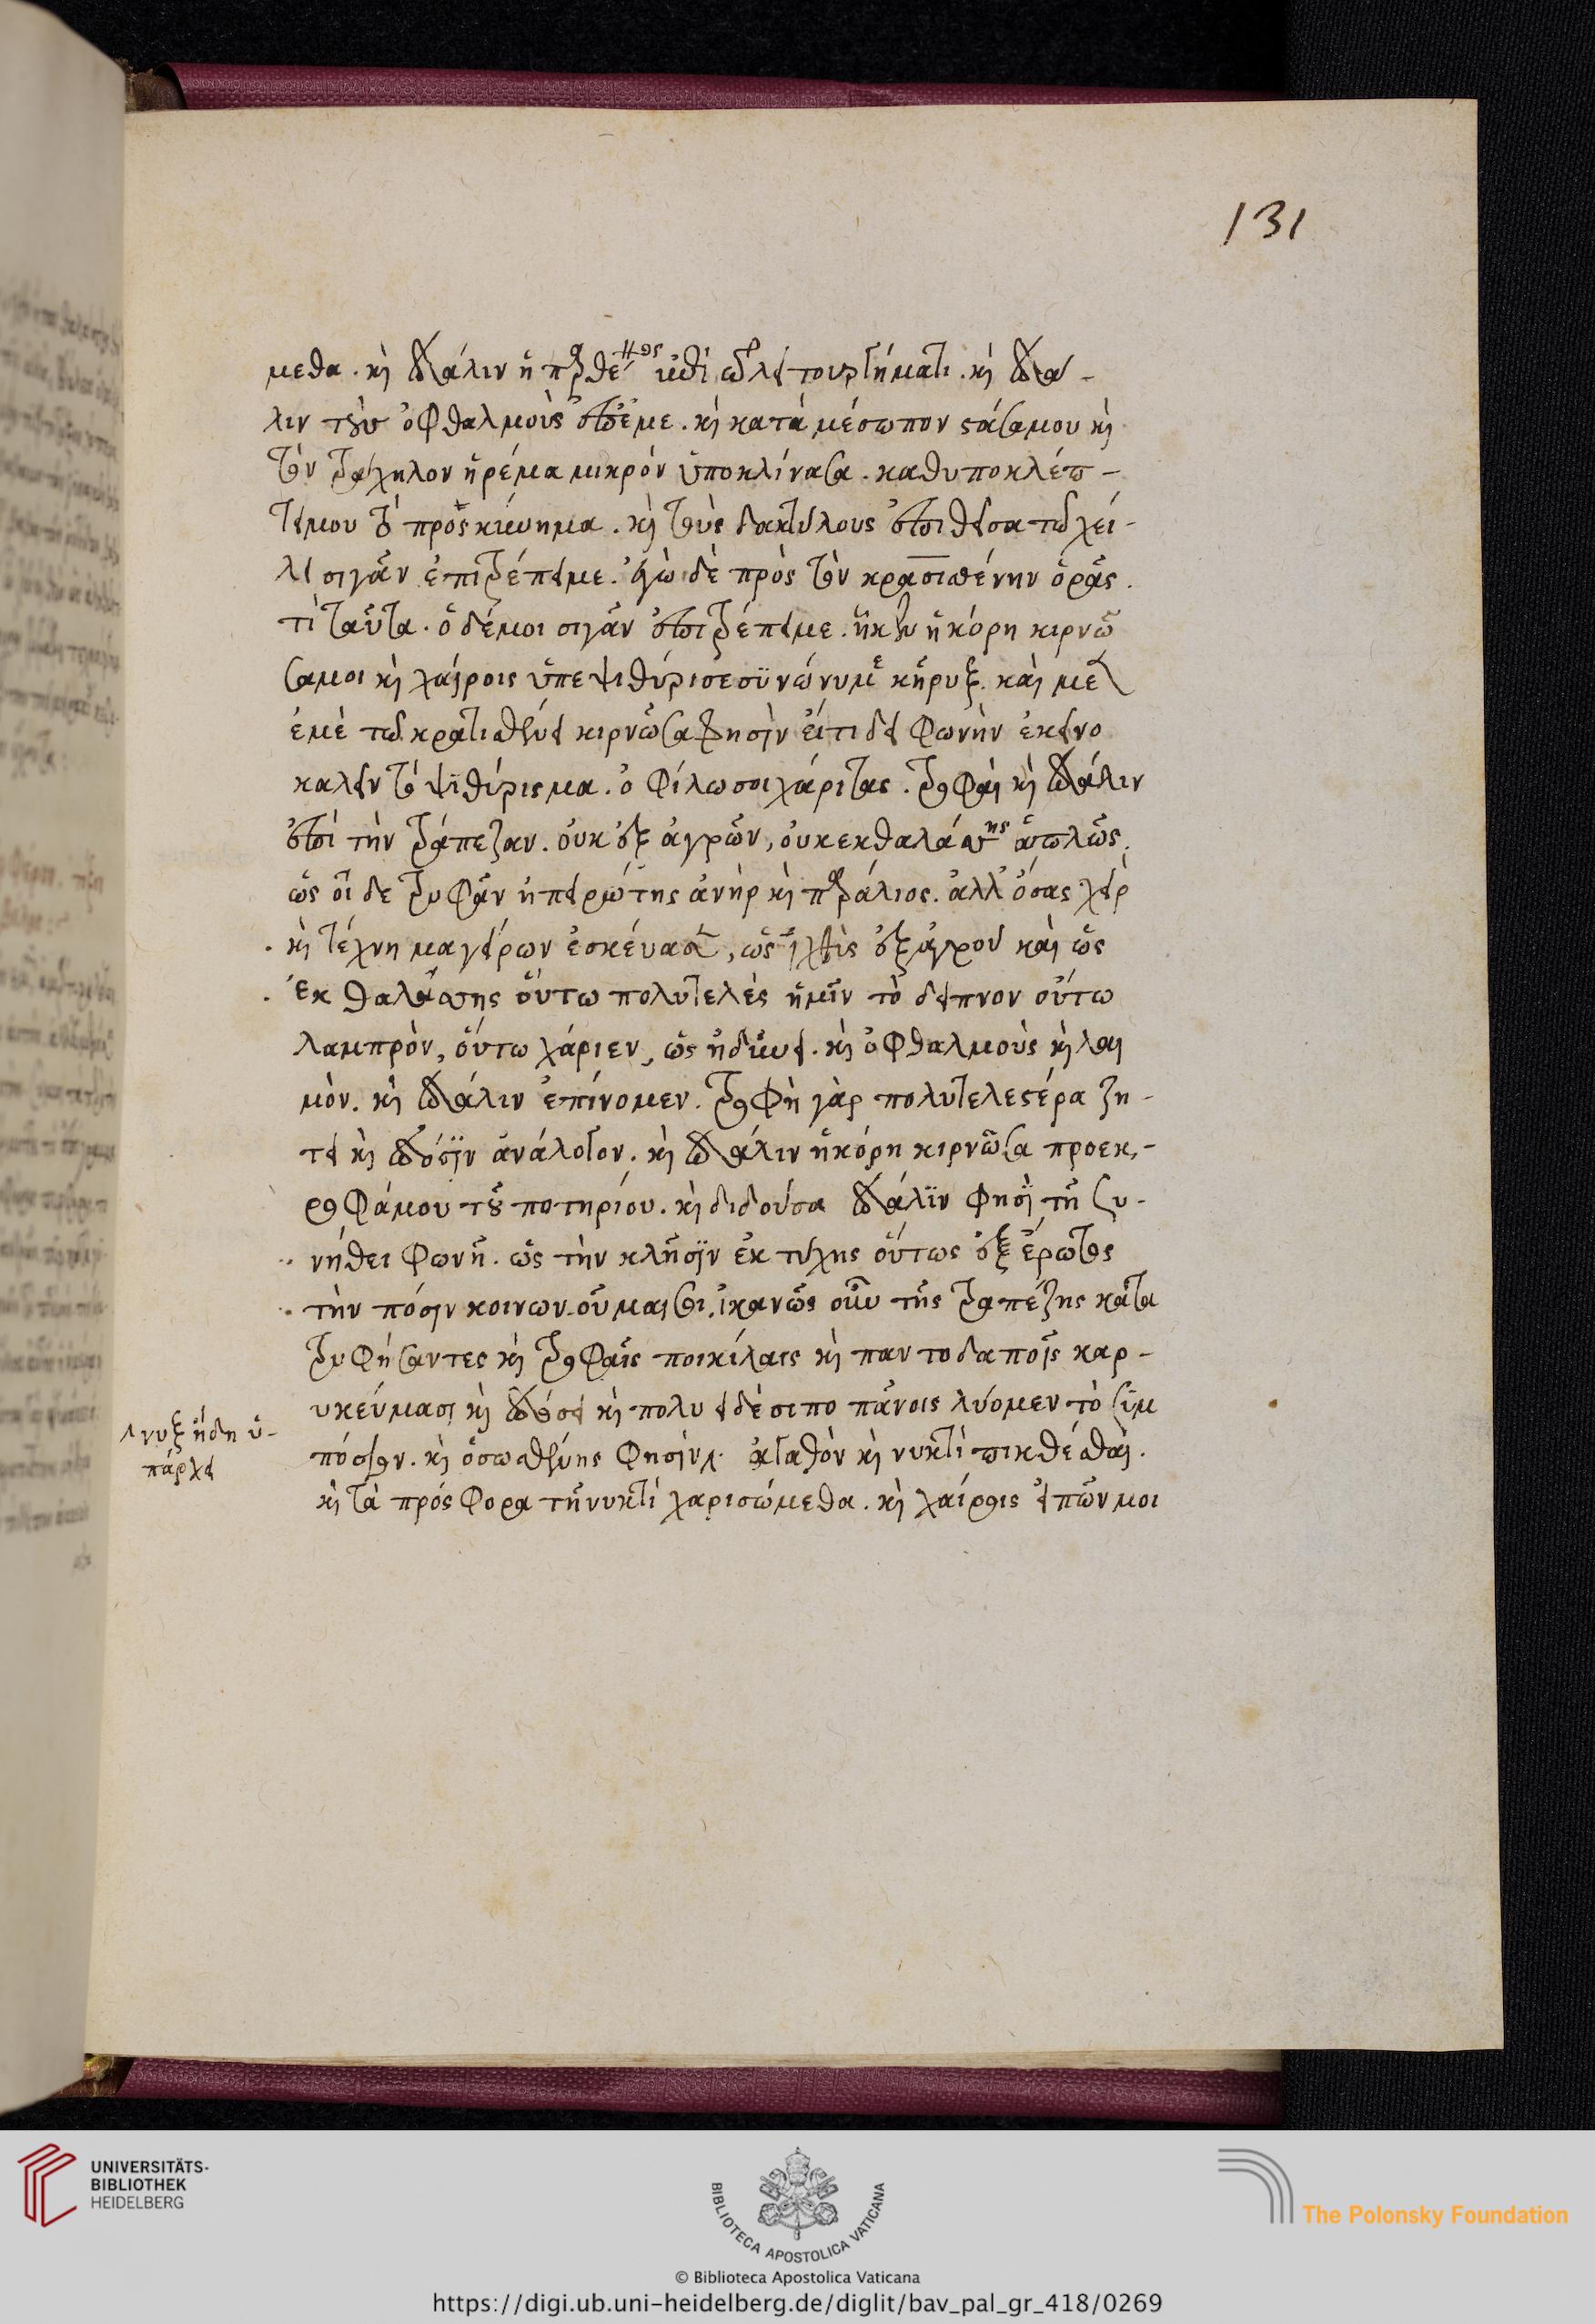 131
μεθα. κὶ πάλιν ἡ παρθένος ἵσταται τῷ συστήματι. κὶ πά-
λιν τοὺς ὀφθαλμοὺς ἐπ' ἐμὲ. κὶ κατὰ μέσωπον στάσα μου κὶ
τὸν τράχηλον ἠρέμα μικρὸν ὑποκλίνασα. καθυποκλέπ-
τει μου τὸ προσκύνημα. κὶ τοὺς δακτύλους ἐπιθεῖσα τῷ χεί-
λει σιγᾶν ἐπιτρέπει με. ἐγὼ δὲ πρὸς τὸν κρατισθένην ὁρᾷς.
τί ταῦτα. ὁ δέ μοι σιγᾶν ἐπιτρέπει με. ἧκεν ἡ κόρη κιρνῶ
σα μοι κὶ χαίροις ὑπεψιθύρισε συνώνυμε κῆρυξ. καὶ μετ'
ἐμὲ τῷ κρατισθένει κιρνῶσα φησὶν εἴ τι δεῖ φωνὴν ἐκεῖνο
καλεῖν τὸ ψιθύρισμα. ὁ φίλω σοι χάριτας. τρυφαὶ κὶ πάλιν
ἐπὶ τὴν τράπεζαν. οὐκ ἐξ ἀγρῶν, οὐκ ἐκ θαλάττης ἁπλῶς.
ὡς οἶδε τρυφᾶν ἠπειρώτης ἀνὴρ κὶ παράλιος. ἀλλ' ὅσας χεὶρ
κὶ τέχνη μαγείρων ἐσκεύασεν, ὡς ἰχθῦς ἐξ ἀγροῦ καὶ ὡς
ἐκ θαλάττης οὕτω πολυτελὲς ἡμῖν τὸ δεῖπνον οὕτω
λαμπρὸν, οὕτω χάριεν, ὡς ἡδύνει. κὶ ὀφθαλμοὺς κὶ λαι
μόν. κὶ πάλιν ἐπίνομεν. τρυφὴ γὰρ πολυτελεστέρα ζη-
τεῖ κὶ πόσιν ἀνάλογον. κὶ πάλιν ἡ κόρη κιρνῶσα προεκ-
ροφᾷ μου τοῦ ποτηρίου. κὶ διδοῦσα πάλιν φησὶ τῇ συ-
νήθει φωνῇ. ὡς τὴν κλῆσιν ἐκ τύχης οὕτως ἐξ ἔρωτος
τὴν πόσιν κοινωνοῦμαι σοι. ἱκανῶς οὖν τῆς τραπέζης κατα
τρυφήσαντες κὶ τροφαῖς ποικίλαις κὶ παντοδαποῖς καρ-
υκεύμασι κὶ πόσει κὶ πολυειδέσι ποπάνοις λύομεν τὸ συμ
πόσιον. κὶ ὁ σωσθένης φησὶν ἀγαθὸν κὶ νυκτὶ πιθέσθαι.
κὶ τὰ πρόσφορα τῇ νυκτὶ χαρισώμεθα. κὶ χαίροις εἰπών μοι
νυξ ἤδη ὑ-
πάρχει
UNIVERSITÄTS-
BIBLIOTHEK
HEIDELBERG
BIBLIOTECA APOSTOLICA VATICANA
The Polonsky Foundation
© Biblioteca Apostolica Vaticana
https://digi.ub.uni-heidelberg.de/diglit/bav_pal_gr_418/0269